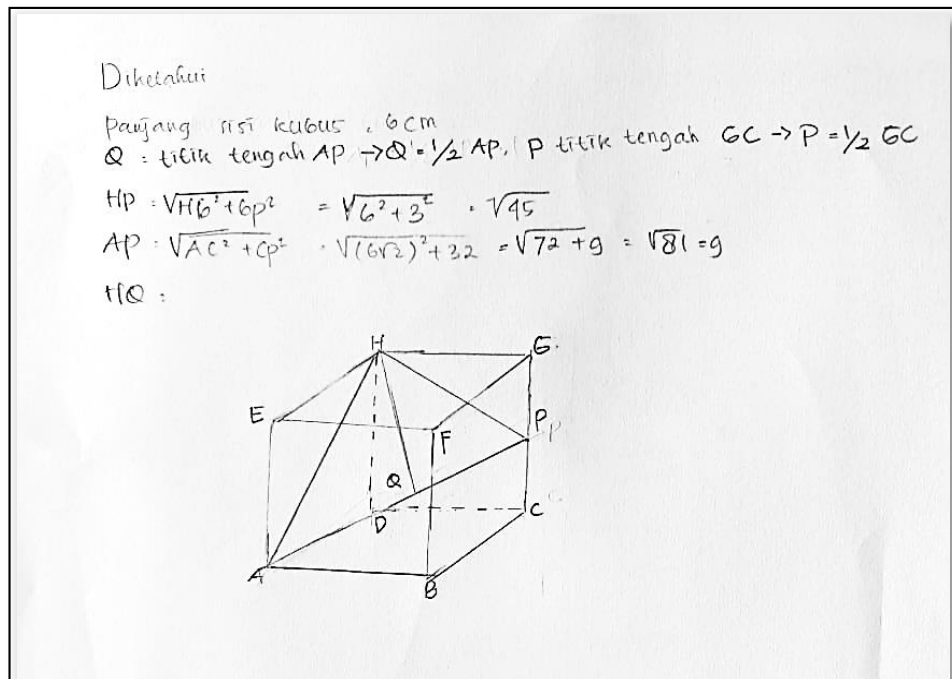 Diketahui
Panjang sisi kubus . 6cm
Q : titik tengah AP → Q = 1/2 AP. P titik tengah GC → P = 1/2 GC
HP : √HG² + GP² = √6² + 3² . √45
AP : √AC² + CP² . √(6√2)² + 32 = √72 + 9 = √81 = 9
HQ :
H G.
E F P P
Q
D C C
A B